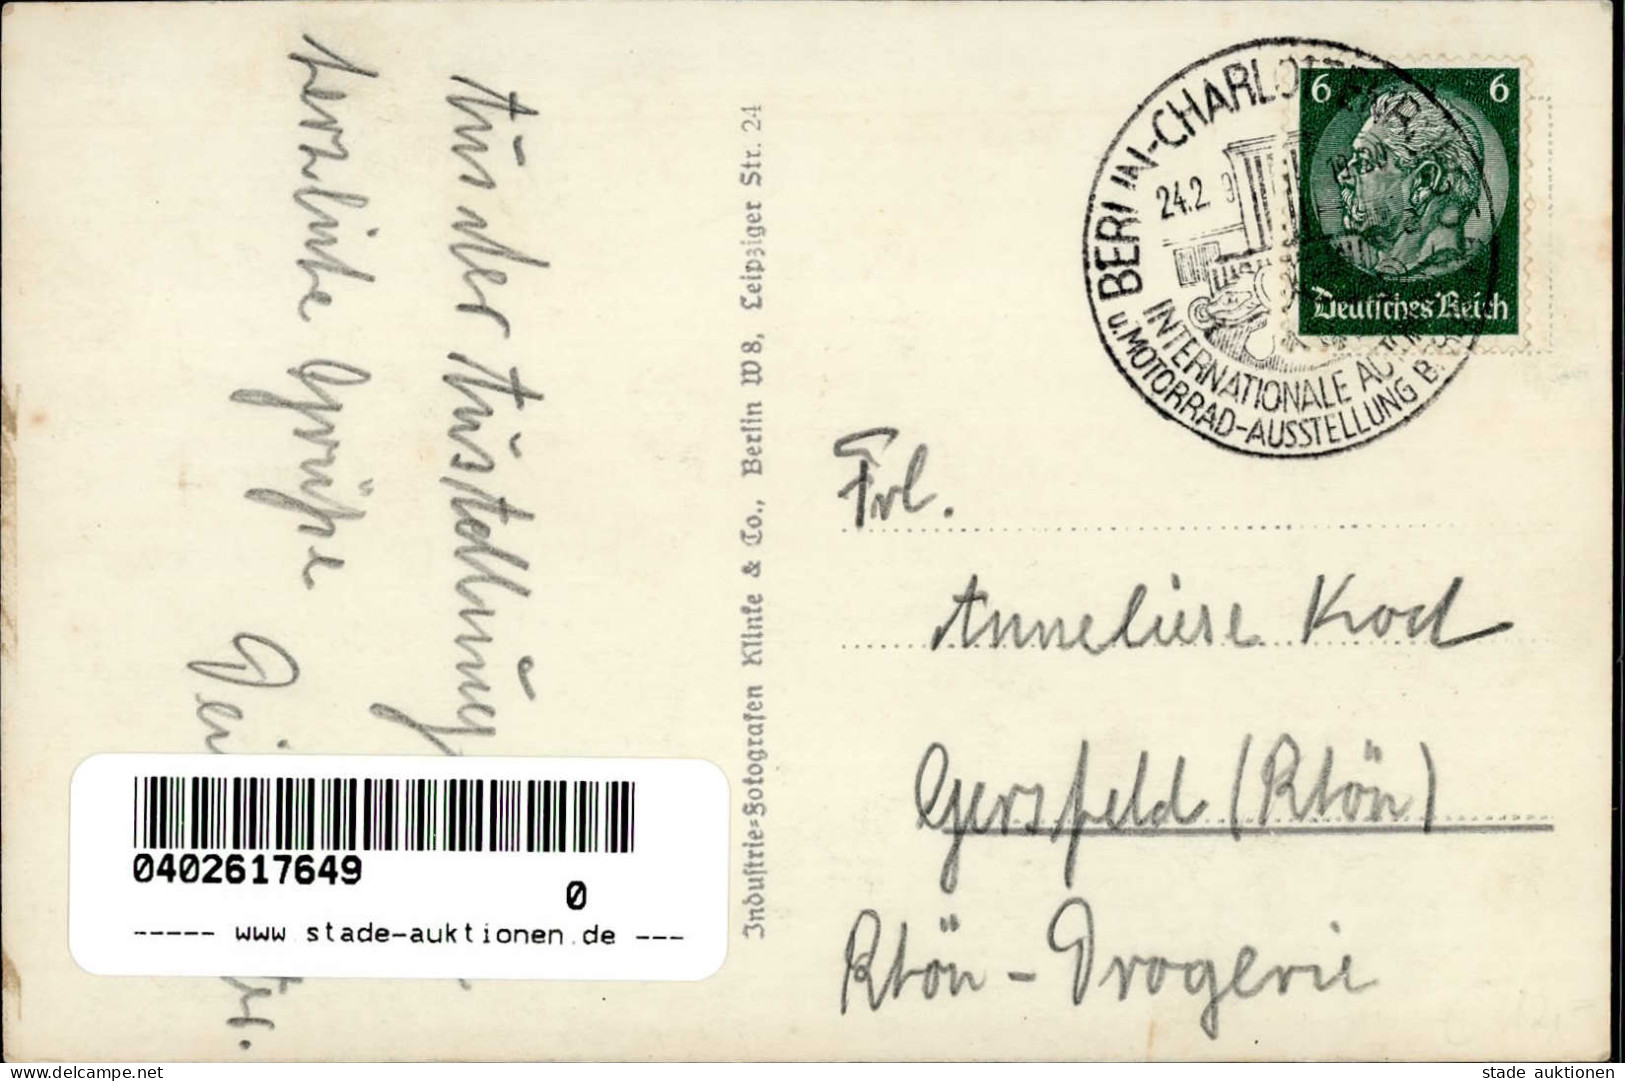 Aus der Ausstellung
herzliche Grüße
Industrie=Fotografen Klinke & Co., Berlin W 8, Leipziger Str. 24
BERLIN-CHARLOTTENB
24.2
19-20
INTERNATIONALE AUTO
u. MOTORRAD-AUSSTELLUNG B
6 6
Deutsches Reich
Frl.
Anneliese Koch
Gersfeld (Rhön)
Rhön - Drogerie
0402617649
0
----- www.stade-auktionen.de ---
www.delcampe.net
stade auktionen